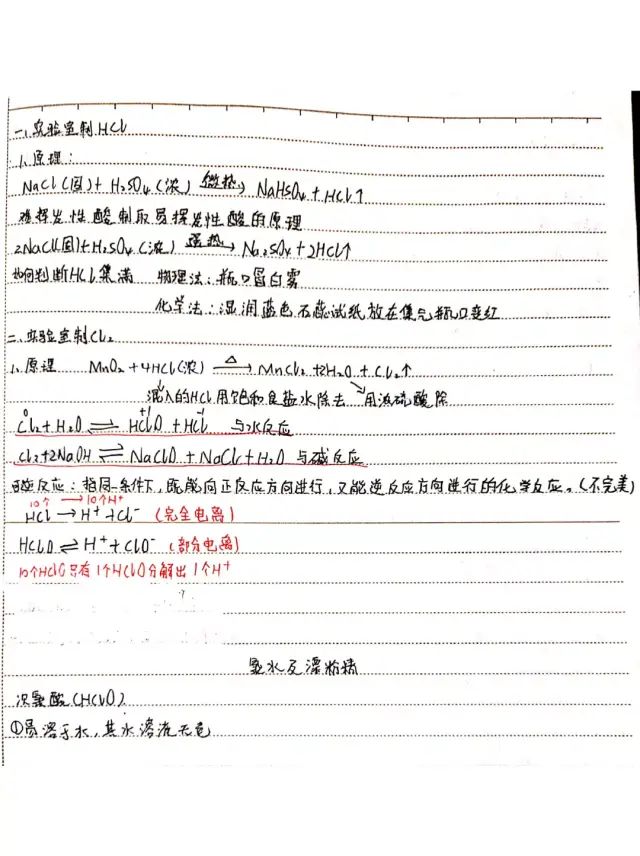 一、实验室制HCl
1、原理:
NaCl(固)+H₂SO₄(浓) 微热→ NaHSO₄+HCl↑
难挥发性酸制取易挥发性酸的原理
2NaCl(固)+H₂SO₄(浓) 强热→ Na₂SO₄+2HCl↑
如何判断HCl集满 物理法:瓶口冒白雾
化学法:湿润蓝色石蕊试纸放在集气瓶口变红
二、实验室制Cl₂
1、原理 MnO₂+4HCl(浓) △→ MnCl₂+2H₂O+Cl₂↑
混入的HCl用饱和食盐水除去 用浓硫酸除
0 +1 -1
Cl₂+H₂O⇌HClO+HCl 与水反应
Cl₂+2NaOH⇌NaClO+NaCl+H₂O 与碱反应
反应:相同条件下,既能向正反应方向进行,又能逆反应方向进行的化学反应。(不完美)
10个→10个H⁺
HCl→H⁺+Cl⁻ (完全电离)
HClO⇌H⁺+ClO⁻ (部分电离)
10个HClO只有1个HClO分解出1个H⁺
氯水及漂粉精
次氯酸(HClO)
①易溶于水,其水溶液无色